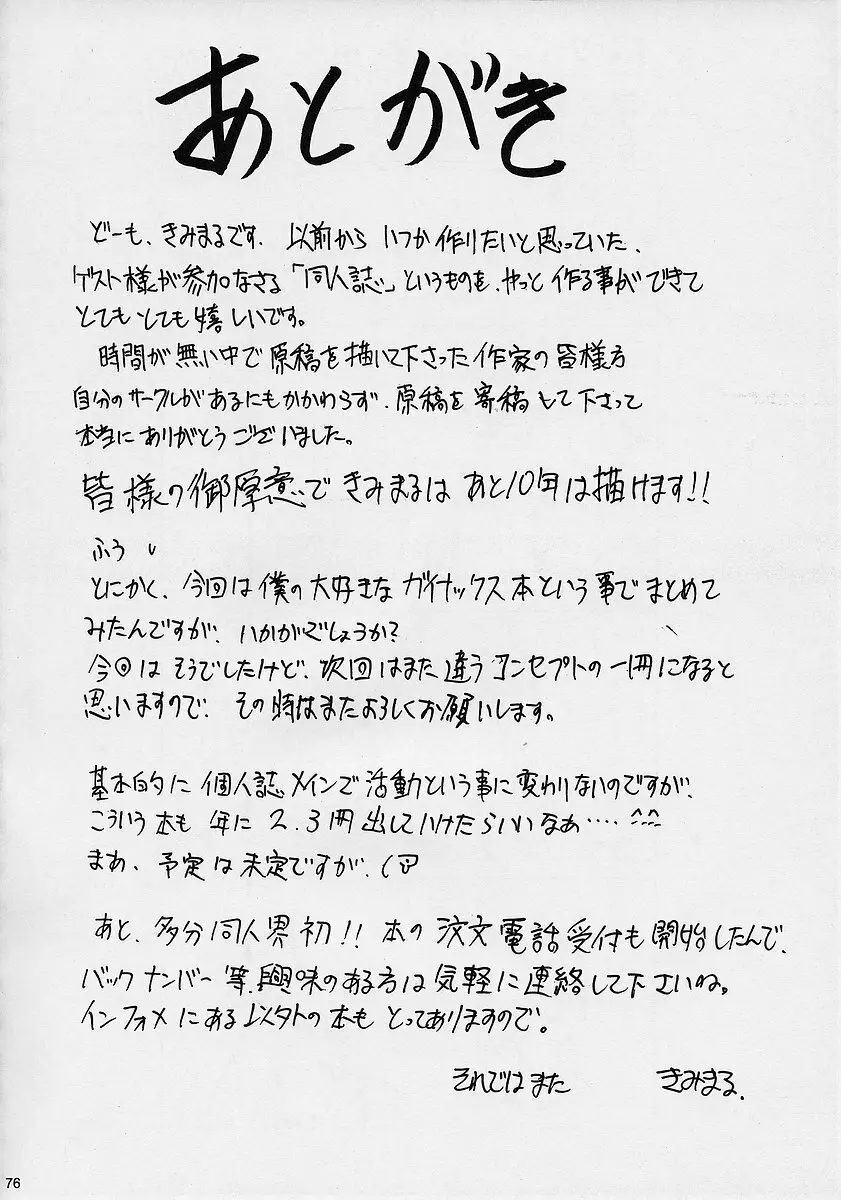 あとがき
どーも、きみまるです。以前から いつか作りたいと思っていた、
ゲスト様が参加なさる「同人誌」というものを、やっと作る事ができて
とてもとても嬉しいです。
時間が無い中で原稿を描いて下さった作家の皆様方
自分のサークルがあるにもかかわらず、原稿を寄稿して下さって
本当にありがとうございました。
皆様の御厚意で きみまるは あと10年は描けます!!
ふう
とにかく、今回は僕の大好きな ガイナックス本という事でまとめて
みたんですが、いかがでしょうか?
今回は そうでしたけど、次回はまた違うコンセプトの一冊になると
思いますので、その時はまたよろしくお願いします。
基本的に 個人誌メインで活動という事に変わりないのですが、
こういう本も 年に 2.3冊出していけたらいいなあ‥‥^^
まあ、予定は未定ですが、(
あと、多分同人界初!! 本の注文電話受付も開始したんで、
バックナンバー等、興味のある方は気軽に連絡して下さいね。
インフォメにある以外の本も とってありますので。
それではまた きみまる.
76